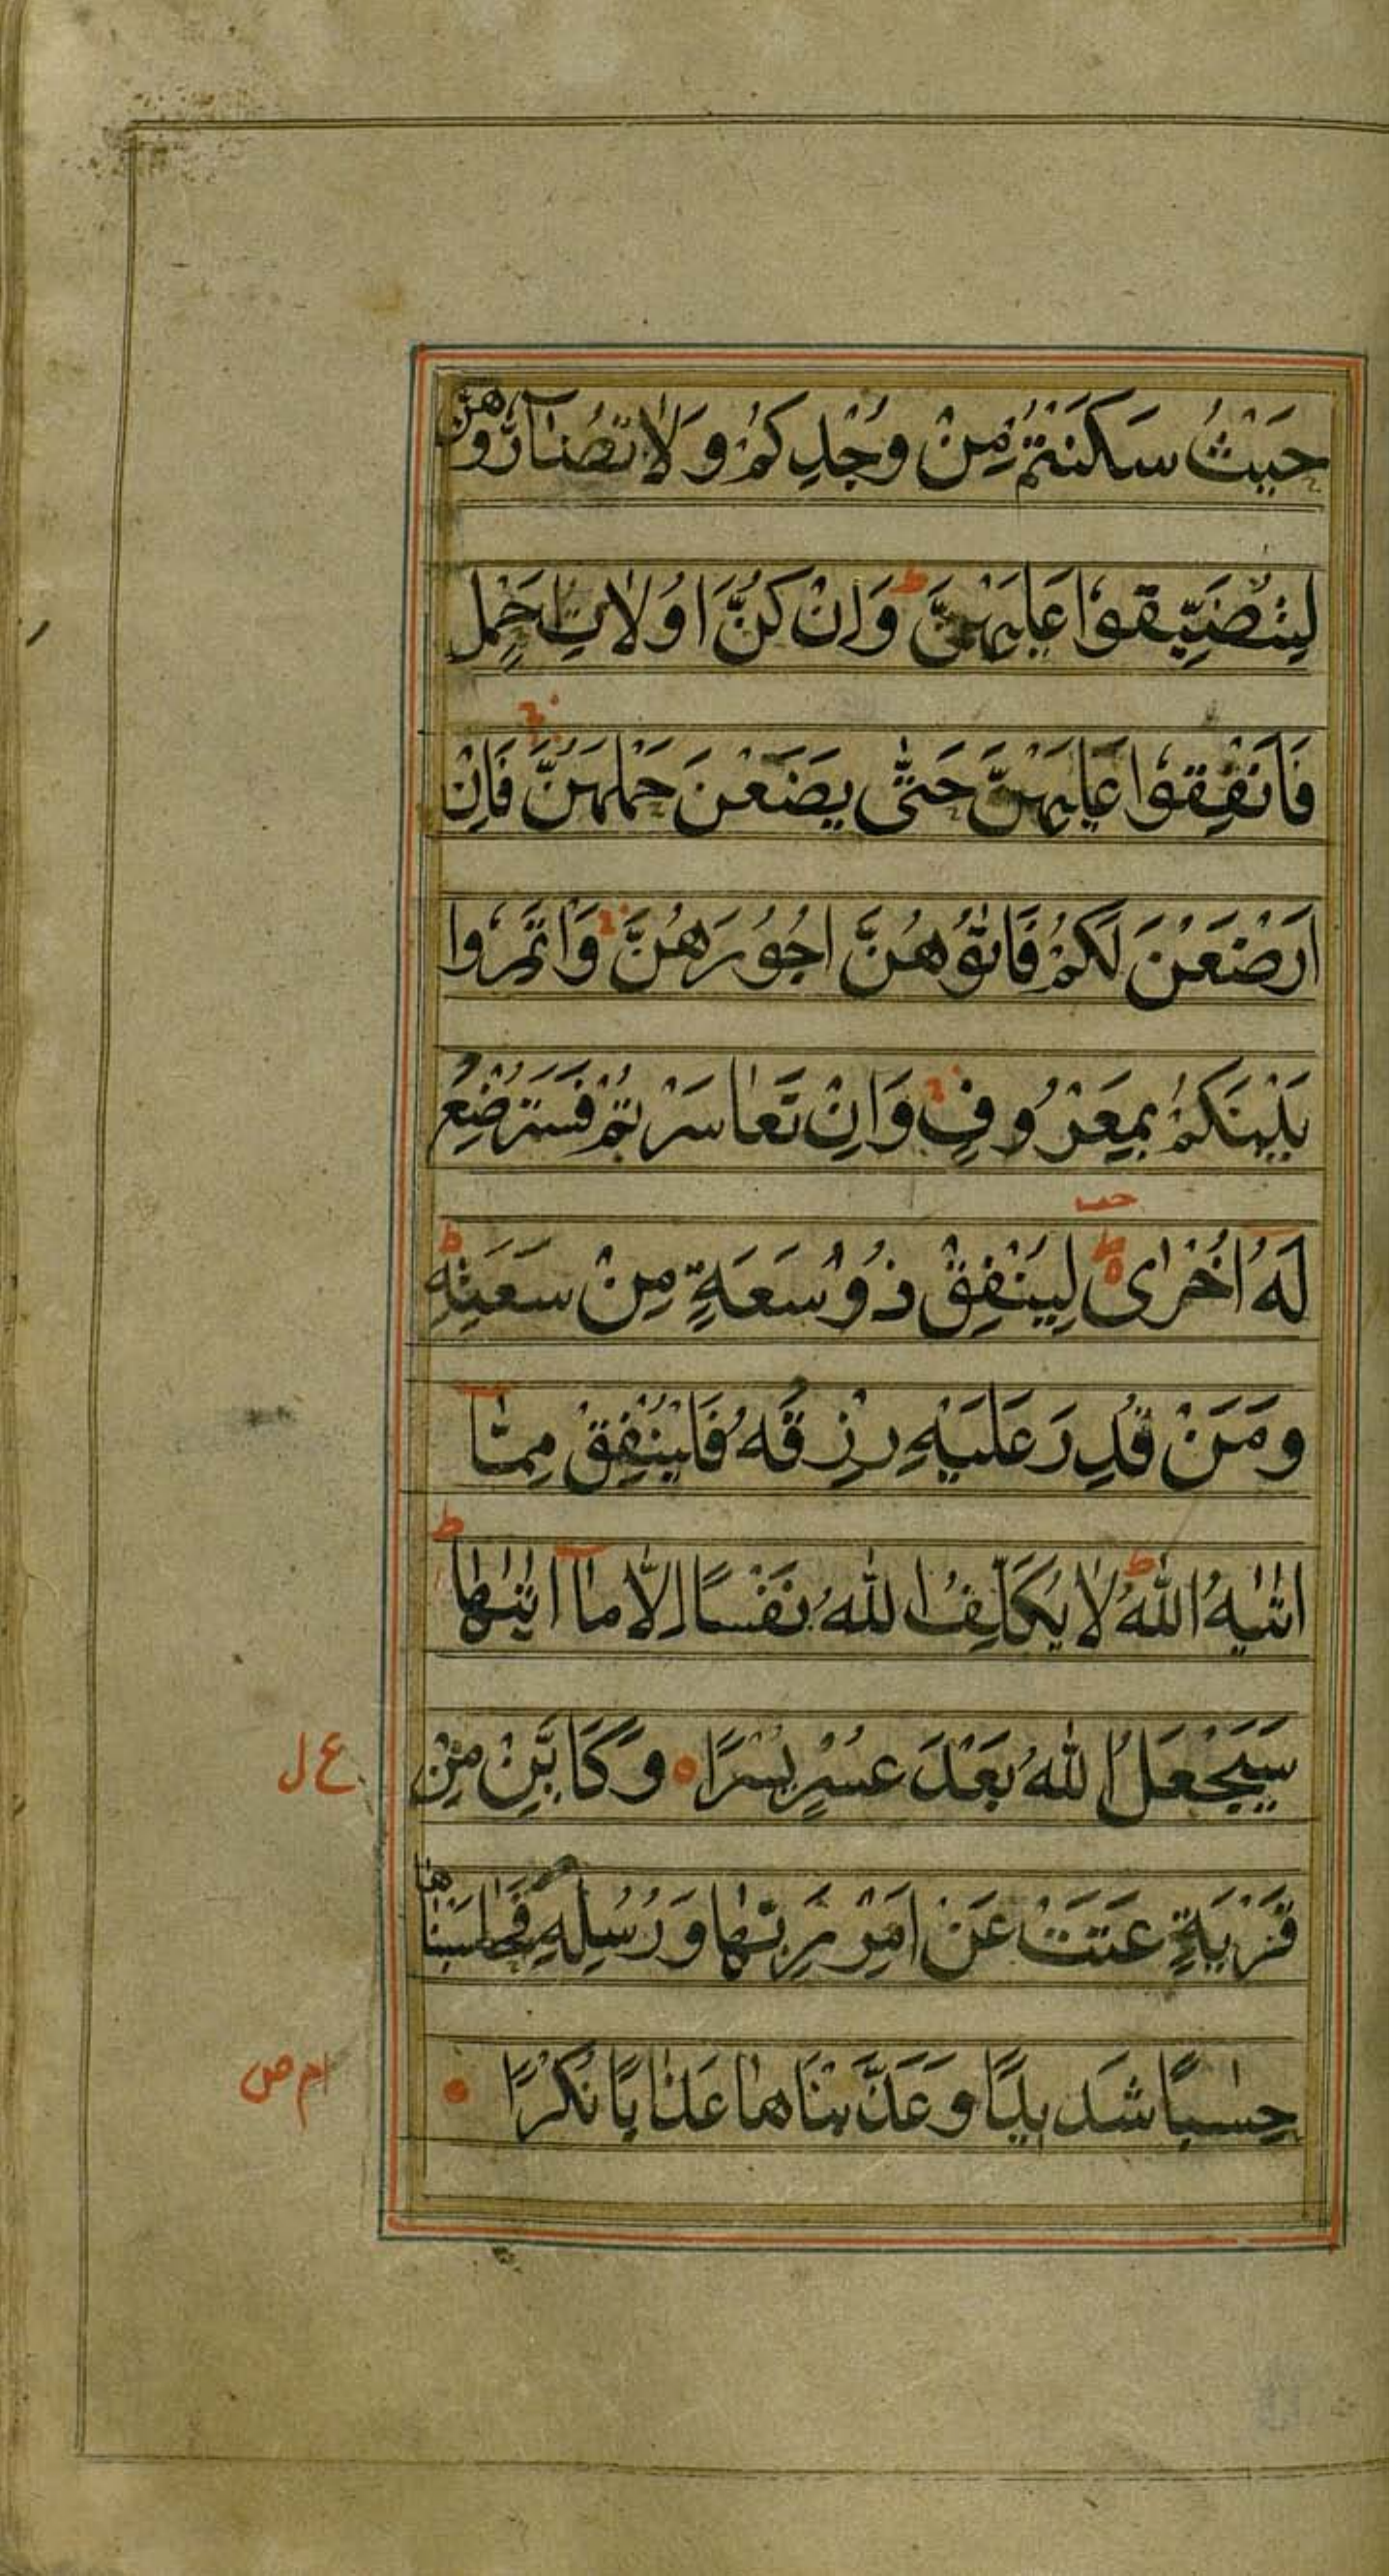 حَيْثُ سَكَنْتُمْ مِنْ وُجْدِكُمْ وَلَا تُضَآرُّوهُنَّ
لِتُضَيِّقُوا عَلَيْهِنَّ ط وَاِنْ كُنَّ اُولَاتِ حَمْلٍ
فَاَنْفِقُوا عَلَيْهِنَّ حَتّٰى يَضَعْنَ حَمْلَهُنَّ فَاِنْ
اَرْضَعْنَ لَكُمْ فَاٰتُوْهُنَّ اُجُوْرَهُنَّ وَاْتَمِرُوا
بَيْنَكُمْ بِمَعْرُوفٍ وَاِنْ تَعَاسَرْتُمْ فَسَتُرْضِعُ
لَهُ اُخْرٰى ط لِيُنْفِقْ ذُوْ سَعَةٍ مِنْ سَعَتِهِ ط
وَمَنْ قُدِرَ عَلَيْهِ رِزْقُهُ فَلْيُنْفِقْ مِمَّآ
اٰتٰيهُ اللّٰهُ ط لَا يُكَلِّفُ اللّٰهُ نَفْسًا اِلَّا مَآ اٰتٰىهَا ط
سَيَجْعَلُ اللّٰهُ بَعْدَ عُسْرٍ يُسْرًا ه وَكَاَيِّنْ مِنْ
ع ل
قَرْيَةٍ عَتَتْ عَنْ اَمْرِ رَبِّهَا وَرُسُلِهِ فَحَاسَبْنَاهَا
حِسَابًا شَدِيدًا وَعَذَّبْنَاهَا عَذَابًا نُكْرًا